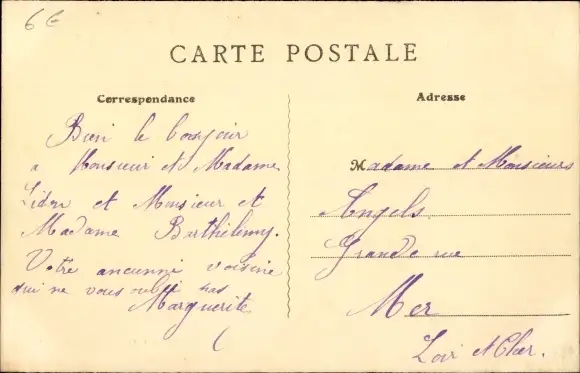 6€
CARTE POSTALE
Correspondance
Bien le bonjour
a Monsieur et Madame
et Monsieur et
Madame Barthelemy.
Votre ancienne voisine
qui ne vous oublie pas
Marguerite
Adresse
Madame et Monsieurs
Angels.
Grande rue
Mer
Loir et Cher.